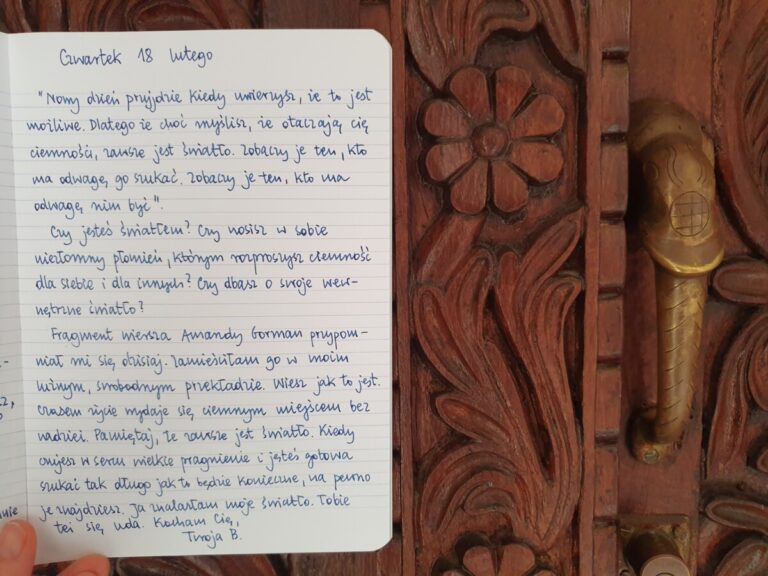 Czwartek 18 lutego
"Nowy dzień przyjdzie kiedy uwierzysz, że to jest
możliwe. Dlatego że choć myślisz, że otaczają cię
ciemności, zawsze jest światło. Zobaczy je ten, kto
ma odwagę go szukać. Zobaczy je ten, kto ma
odwagę nim być".
Czy jesteś światłem? Czy nosisz w sobie
niezłomny płomień, którym rozproszysz ciemność
dla siebie i dla innych? Czy dbasz o swoje wew-
nętrzne światło?
Fragment wiersza Amandy Gorman przypom-
niał mi się dzisiaj. Zamieściłam go w moim
luźnym, swobodnym przekładzie. Wiesz jak to jest.
Czasem życie wydaje się ciemnym miejscem bez
nadziei. Pamiętaj, że zawsze jest światło. Kiedy
czujesz w sercu wielkie pragnienie i jesteś gotowa
szukać tak długo jak to będzie konieczne, na pewno
je znajdziesz. Ja znalazłam moje światło. Tobie
też się uda. Kocham Cię,
Twoja B.